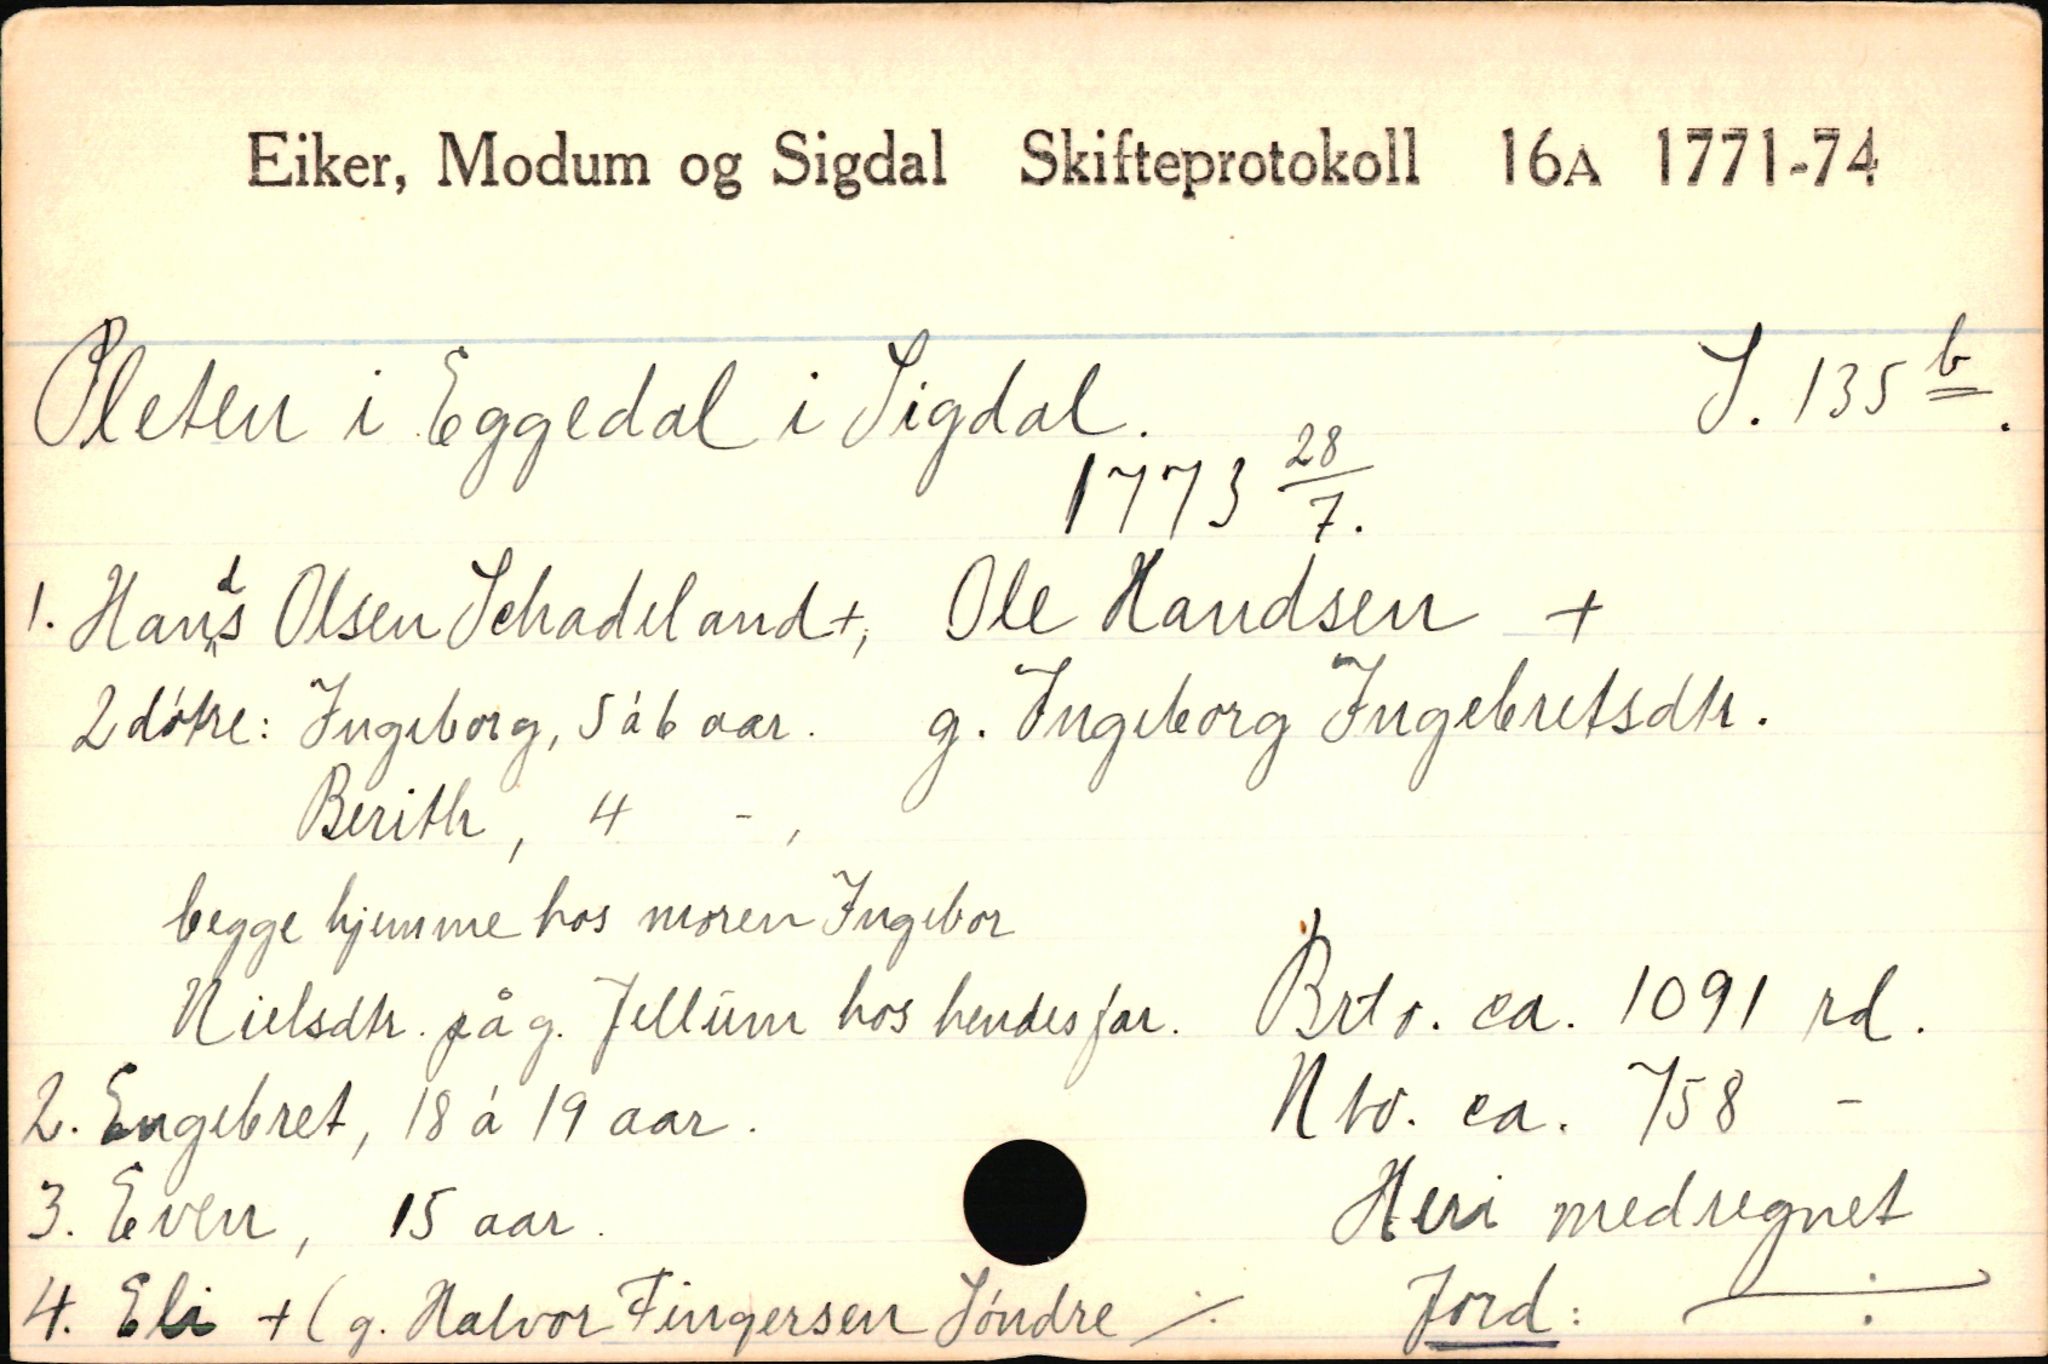 Eiker, Modum og Sigdal Skifteprotokoll 16A 1771-74
Pleten i Eggedal i Sigdal. S. 135 b.
1773 28/7.
1. Hands Olsen Schadeland +, Ole Handsen +
2 døtre: Ingeborg, 5 á 6 aar. g. Ingeborg Ingebretsdtr.
Berith, 4 - ,
begge hjemme hos moren Ingebor
Nielsdtr. på g. Jellum hos hendes far. Brto. ca. 1091 rd.
2. Engebret, 18 á 19 aar. Nto. ca. 758 -
3. Even, 15 aar. Heri medregnet
4. Eli + (g. Halvor Fingersen Søndre ./. Jord: ÷